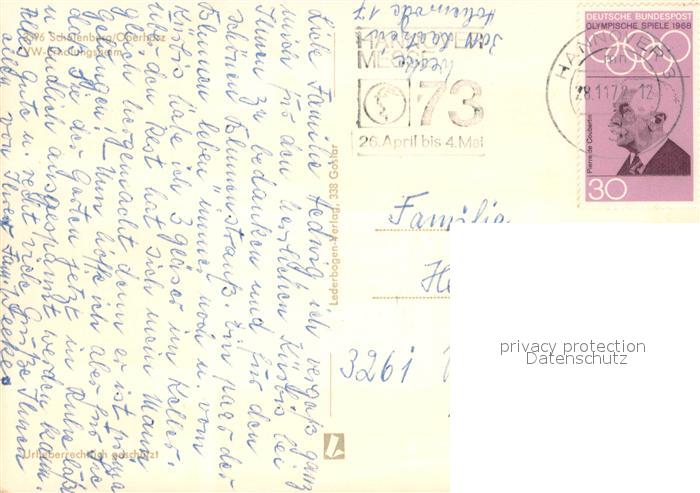 3396 Schulenberg/Oberharz
VW-Erholungsheim
Liebe Familie Hedwig ich vergaß ganz
mich für den herrlichen Kürbis bei
Ihnen zu bedanken und für den
bunten Blumenstrauß. Ein paar der
Blumen leben immer noch u. vom
Kürbis habe ich 3 Gläser im Keller.
gleich den Rest hat sich mein Mann
darüber hergemacht denn er ist prima
gelungen! Nun hoffe ich aber für Sie
daß Sie der Garten jetzt in Ruhe läßt
u. endlich ausgespannt werden kann.
alles Gute u. recht viele Grüße Ihnen
allen von Ihrer Fam.
Urheberrechtlich geschützt
Lederbogen-Verlag, 338 Goslar
HANNOVER
MESSE
73
26. April bis 4. Mai
HANNOVER
28.11.72-12
DEUTSCHE BUNDESPOST
OLYMPISCHE SPIELE 1968
Pierre de Coubertin
30
Familie
3261
privacy protection
Datenschutz